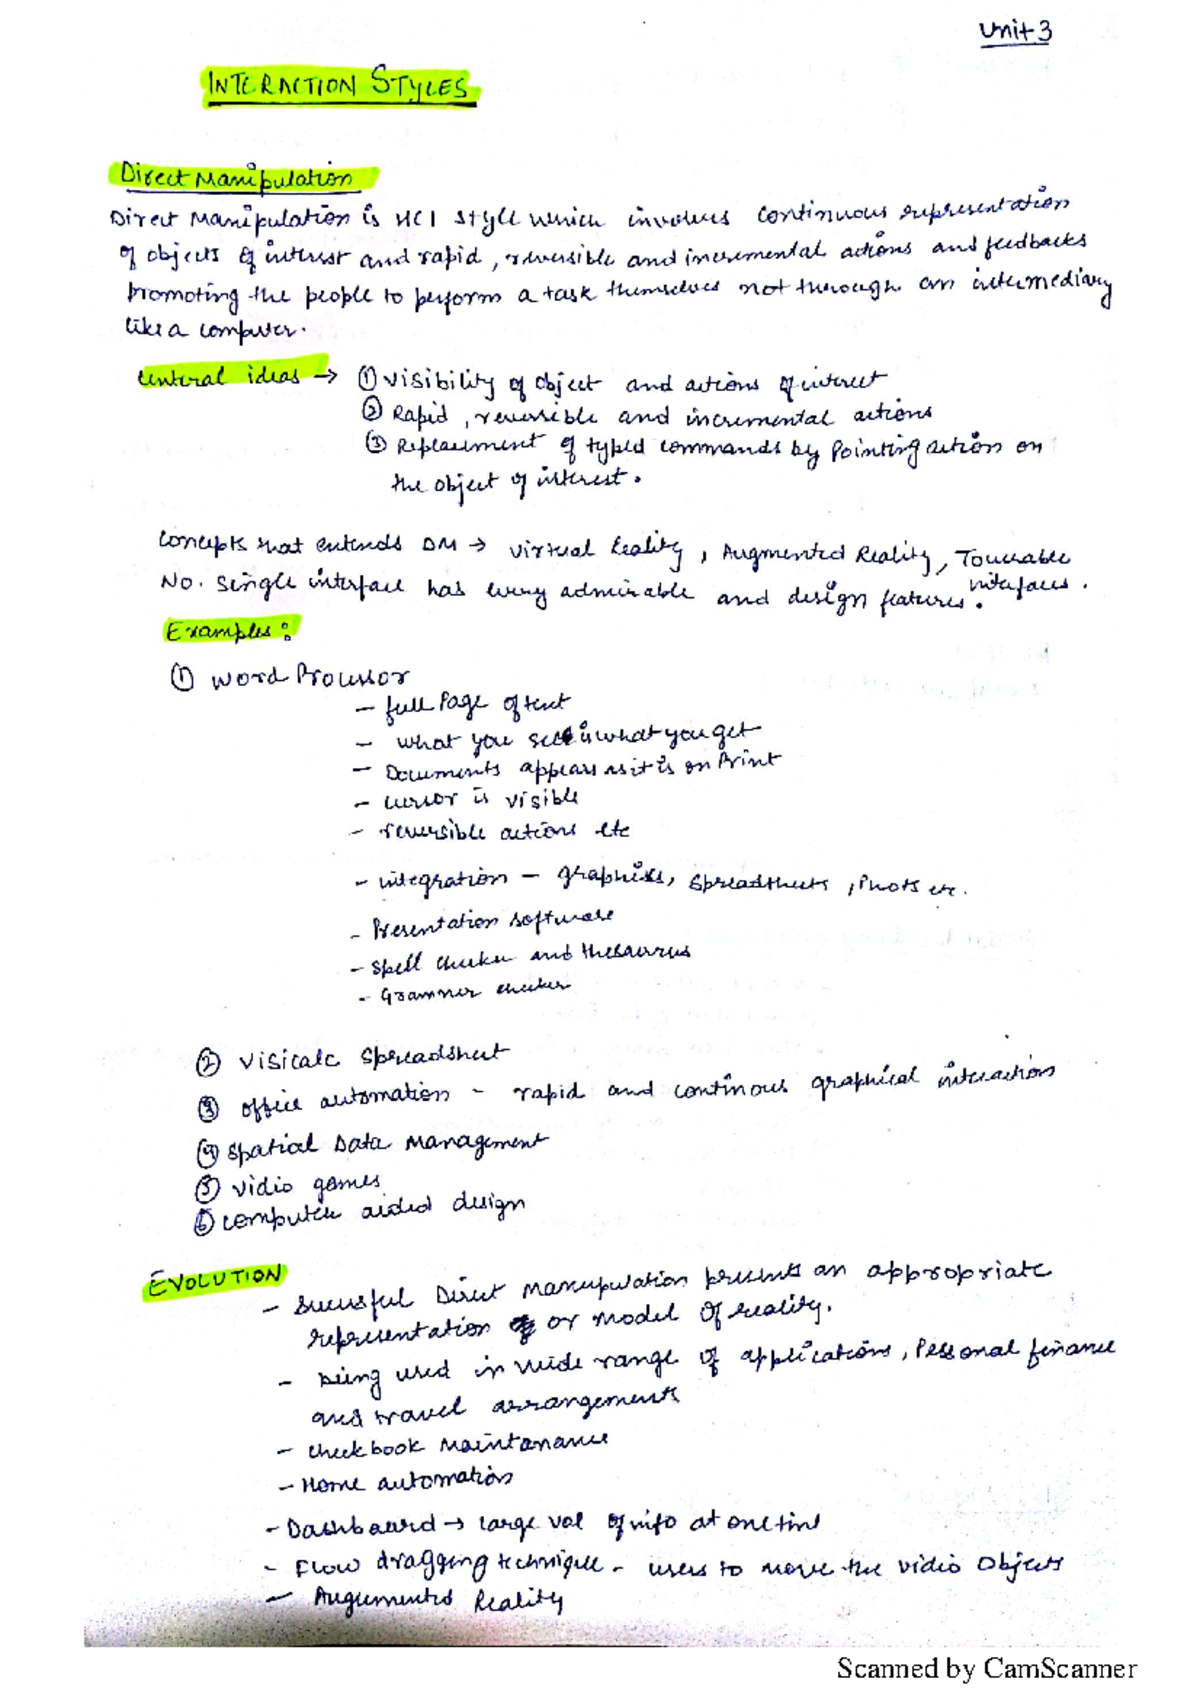 Unit 3
INTERACTION STYLES
Direct Manipulation
Direct Manipulation is HCI style which involves continuous representation
of objects of interest and rapid, reversible and incremental actions and feedbacks
promoting the people to perform a task themselves not through an intermediary
like a computer.
Central ideas → ① Visibility of object and actions of interest
② Rapid, reversible and incremental actions
③ Replacement of typed commands by Pointing action on
the object of interest.
Concepts that extends DM → Virtual Reality, Augmented Reality, Touchable
interfaces.
No. single interface has every admirable and design features.
Examples:
① Word Processor
- full Page of text
- what you see is what you get
- Documents appears as it is on Print
- cursor is visible
- reversible actions etc
- integration - graphics, spreadsheets, Photos etc.
- Presentation software
- spell checker and thesaurus
- Grammer checker
② Visicalc Spreadsheet
③ office automation - rapid and continous graphical interaction
④ spatial Data Management
⑤ vidio games
⑥ computer aided design
EVOLUTION
- Sucessful Direct Manupulation presents an appropriate
representation or model of reality.
- being used in wide range of applications, Personal finance
and travel arrangements
- checkbook maintanance
- Home automation
- Dashboard → large vol of info at one time
- Flow dragging technique - users to move the vidio Objects
- Augumented Reality
Scanned by CamScanner